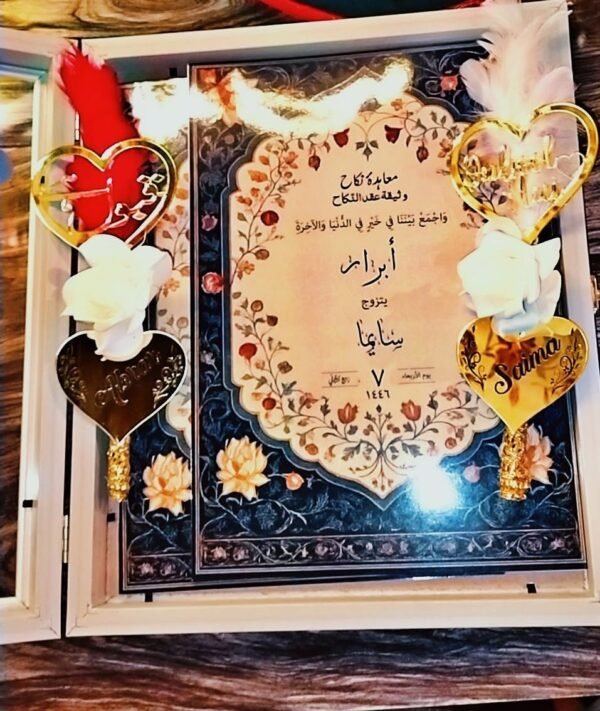 معاہدۂ نکاح
وثيقة عقد النكاح
وَاجْمَعْ بَيْنَنَا فِي خَيْرٍ فِي الدُّنْيَا وَالآخِرَةِ
أبرار
يتزوج
سايما
يوم الأربعاء ٧ ربيع
١٤٤٦
Saima